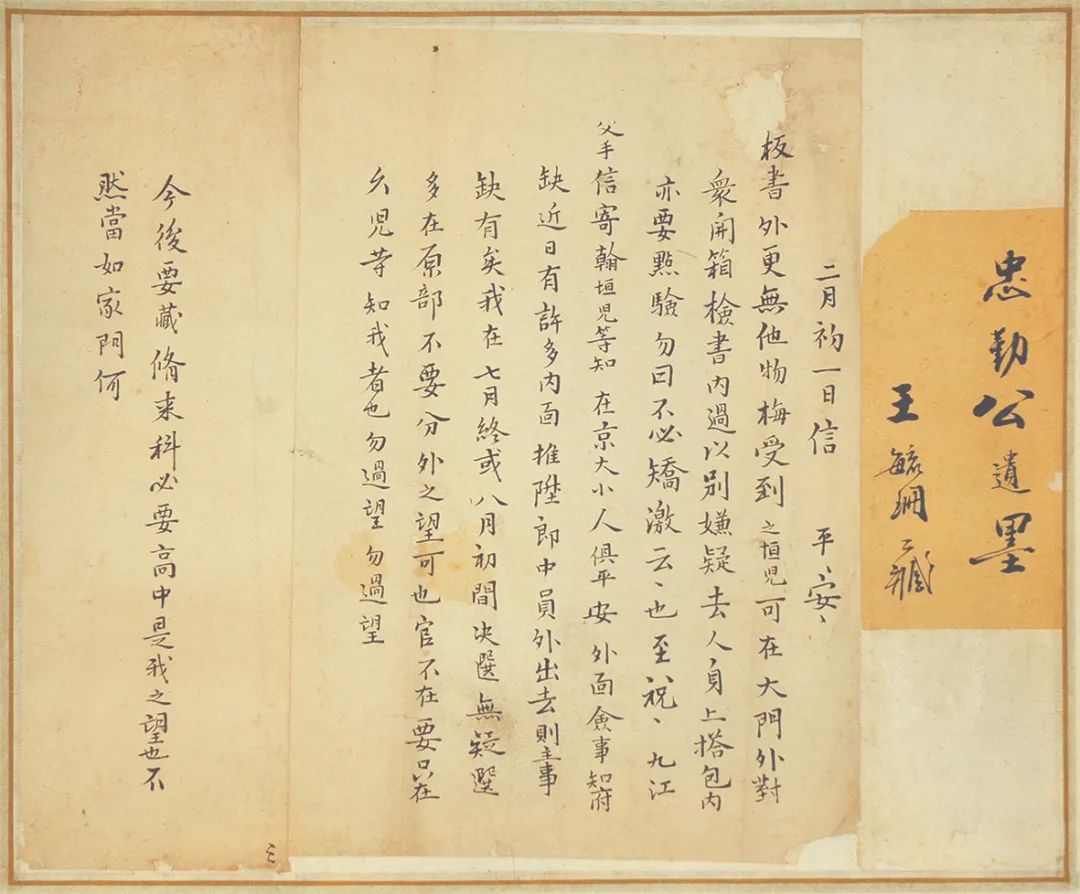 忠勤公遺墨
王毓珊藏
二月初一日信　平〻安〻
板書外更無他物梅受到之垣児可在大門外對
衆開箱檢書内過以别嫌疑去人身上搭包内
亦要點驗勿曰不必矯激云〻也至祝〻九江
父手信寄翰垣児等知在京大小人俱平安外面僉事知府
缺近日有許多内面推陞郎中員外出去則主事
缺有矣我在七月終或八月初間决選無疑選
多在原部不要分外之望可也官不在要只在
久児等知我者也勿過望勿過望
今後要藏脩来科必要高中是我之望也不
然當如家門何